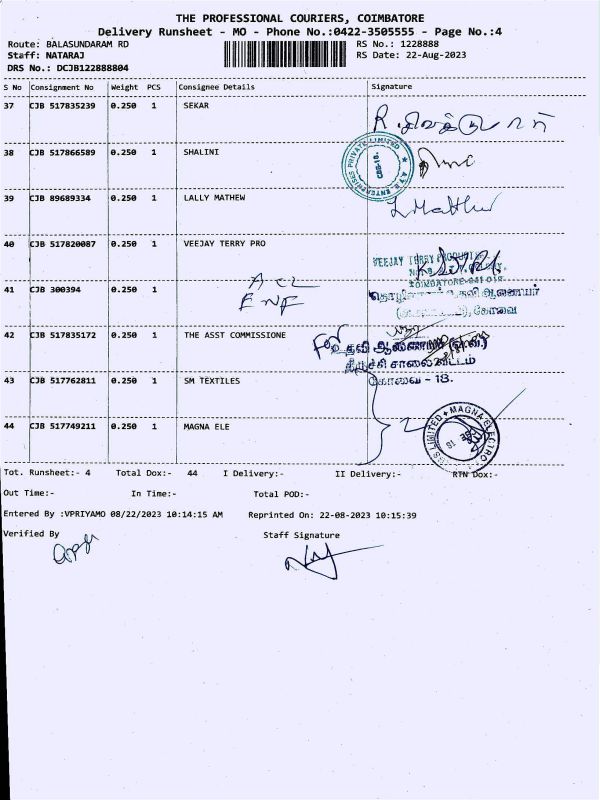 THE PROFESSIONAL COURIERS, COIMBATORE
Delivery Runsheet - MO - Phone No.:0422-3505555 - Page No.:4
Route: BALASUNDARAM RD RS No.: 1228888
Staff: NATARAJ RS Date: 22-Aug-2023
DRS No.: DCJB122888804
S No Consignment No Weight PCS Consignee Details Signature
37 CJB 517835239 0.250 1 SEKAR
38 CJB 517866589 0.250 1 SHALINI
39 CJB 89689334 0.250 1 LALLY MATHEW
L Mathew
40 CJB 517820087 0.250 1 VEEJAY TERRY PRO
VEEJAY TERRY
COIMBATORE-641 018.
41 CJB 300394 0.250 1
உதவி ஆணையர்
கோவை
42 CJB 517835172 0.250 1 THE ASST COMMISSIONE
உதவி ஆணையர்
திருச்சி சாலை வட்டம்
கோவை - 18.
43 CJB 517762811 0.250 1 SM TEXTILES
44 CJB 517749211 0.250 1 MAGNA ELE
MAGNA ELECTRO LIMITED
Tot. Runsheet:- 4 Total Dox:- 44 I Delivery:- II Delivery:- RTN Dox:-
Out Time:- In Time:- Total POD:-
Entered By :VPRIYAMO 08/22/2023 10:14:15 AM Reprinted On: 22-08-2023 10:15:39
Verified By Staff Signature